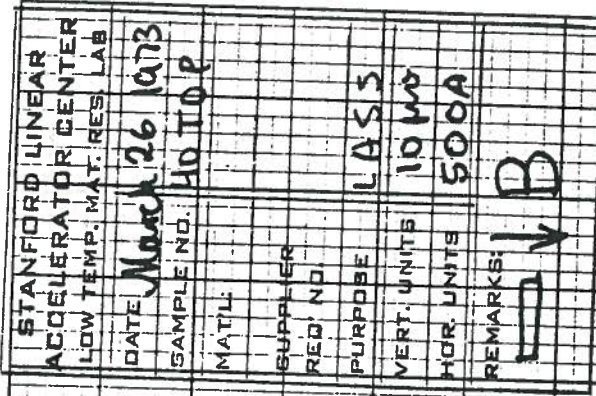 STANFORD LINEAR
ACCELERATOR CENTER
LOW TEMP. MAT. RES. LAB
DATE March 26 1973
SAMPLE NO. 40 TOP
MAT'L.
SUPPLIER
REQ' NO.
PURPOSE LASS
VERT. UNITS 10 μv
HOR. UNITS 500A
REMARKS:
B